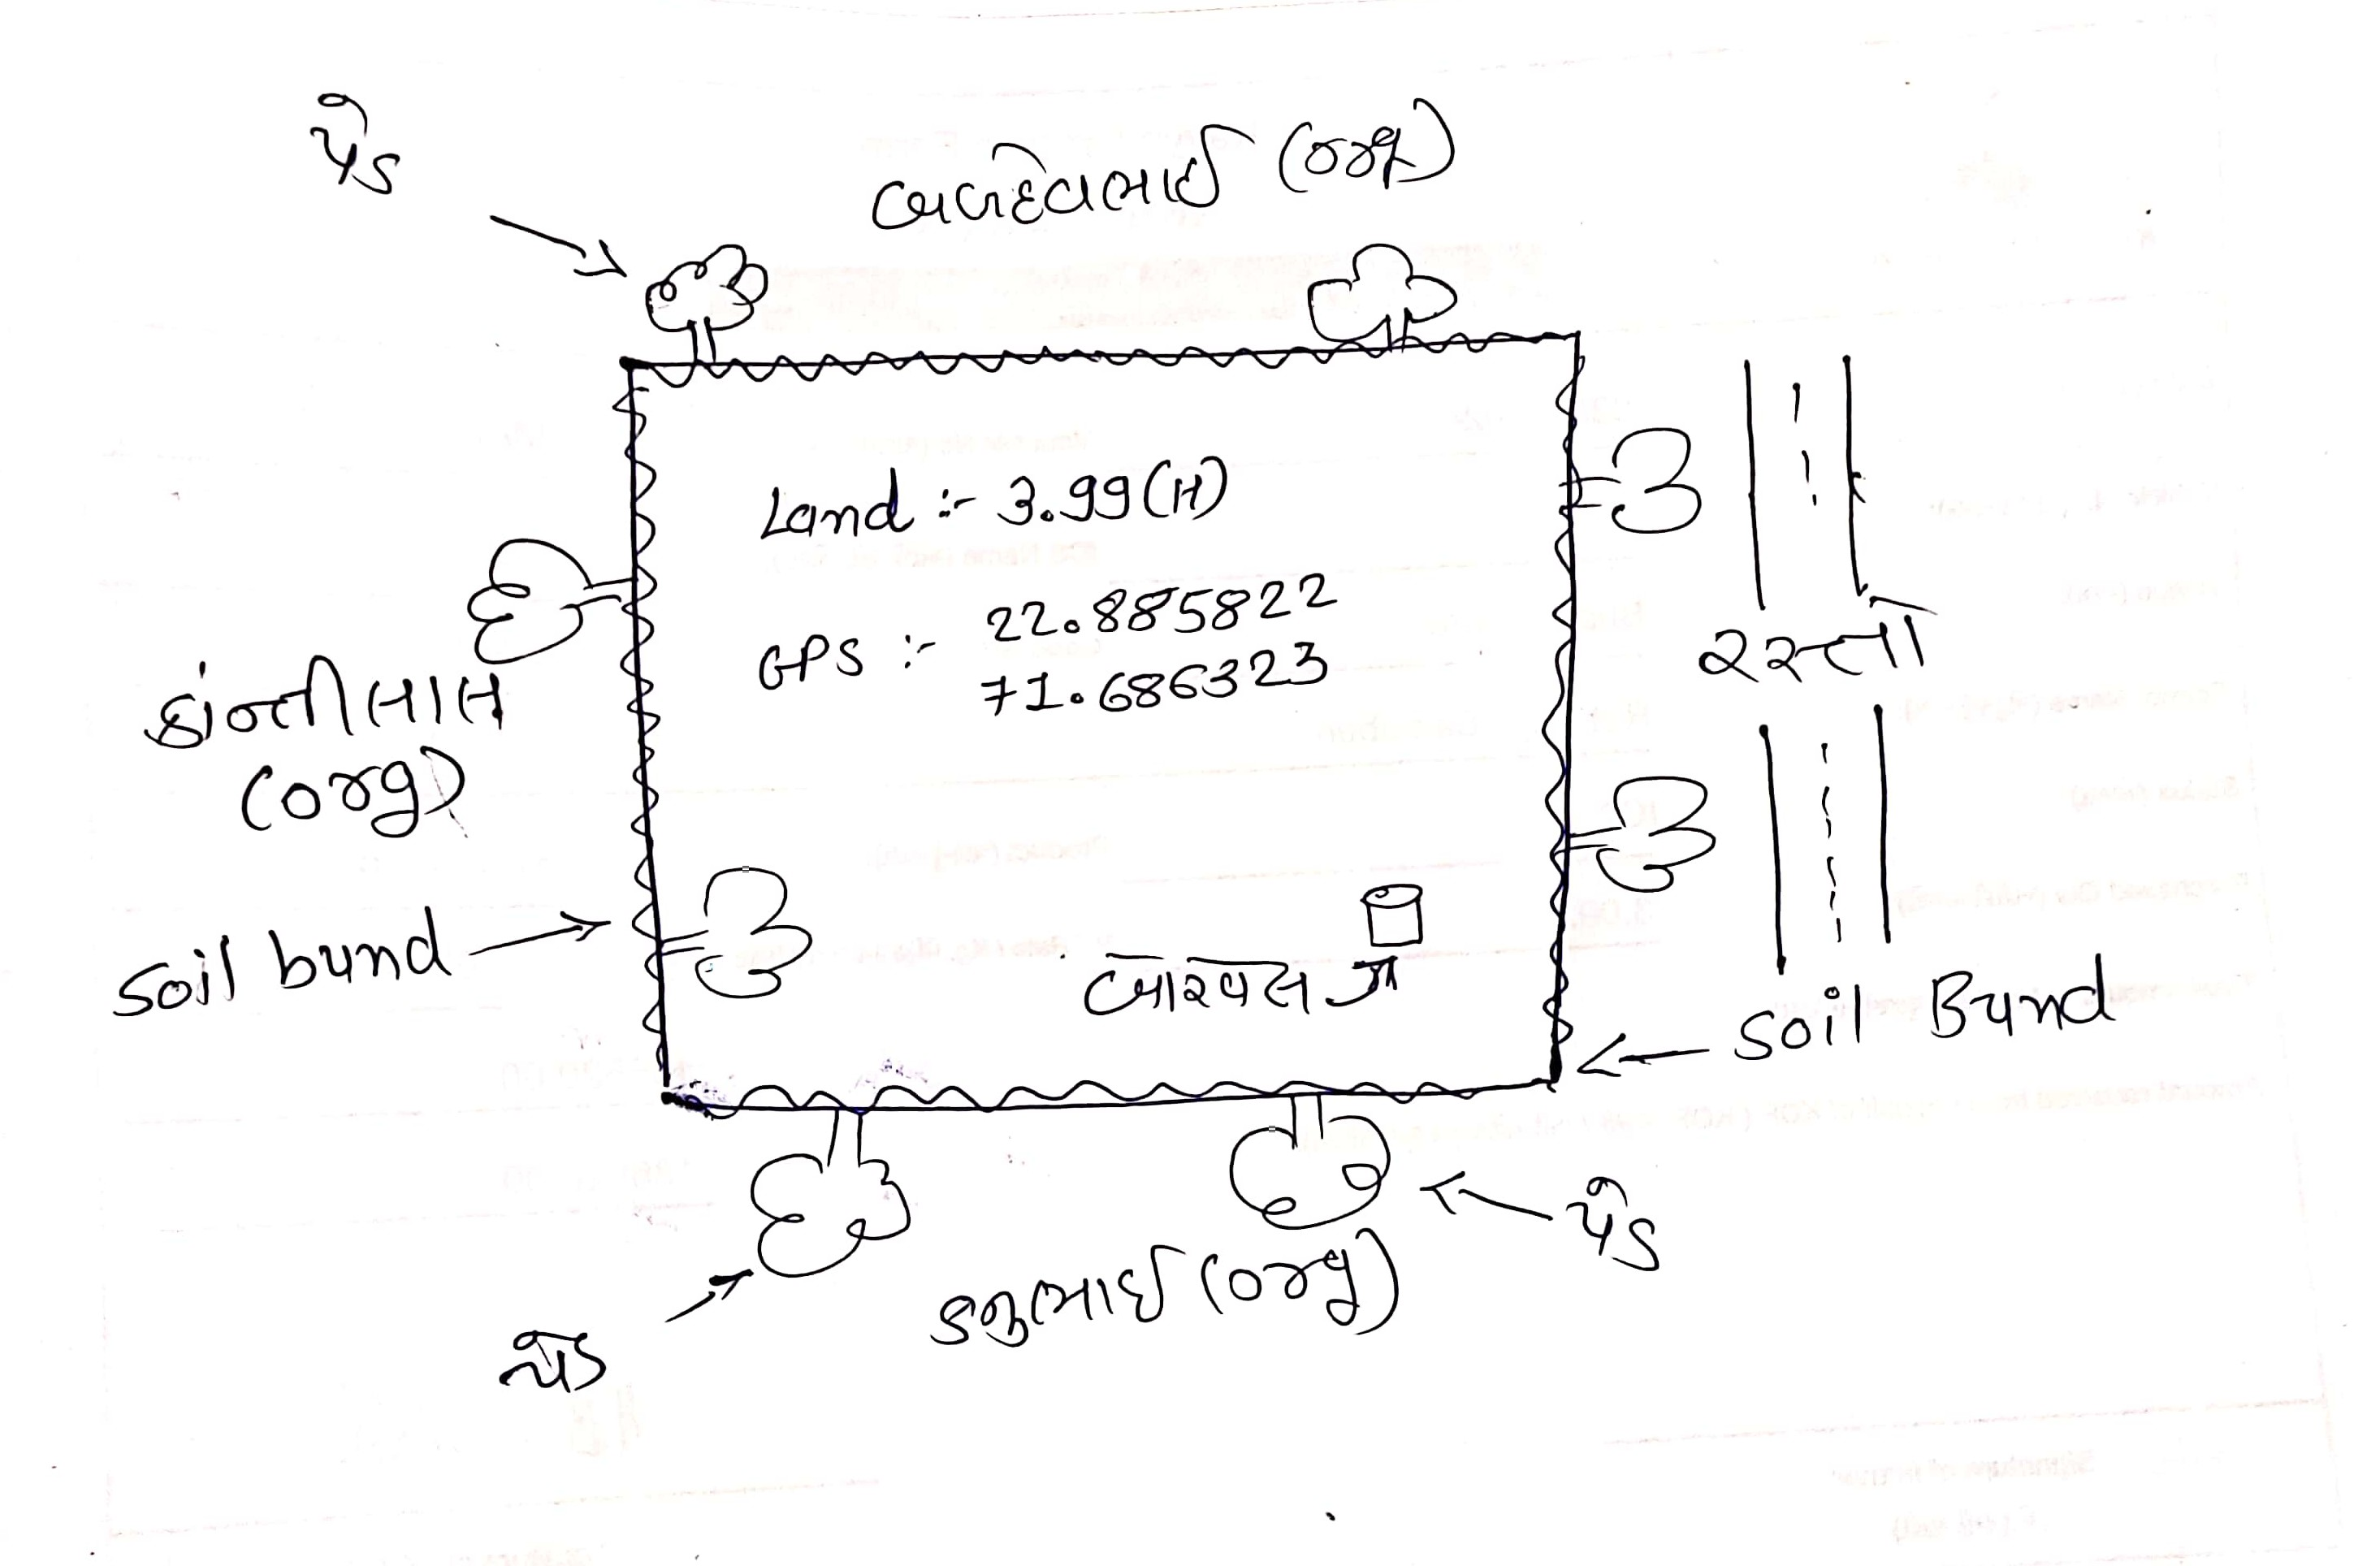 પેડ
બળદેવભાઈ (org)
Land :- 3.99 (H)
GPS :- 22.885822
71.686323
કાંન્તીલાલ
(org)
રસ્તો
soil bund
બોરવેલ
soil Bund
પેડ
કનુભાઈ (org)
પેડ